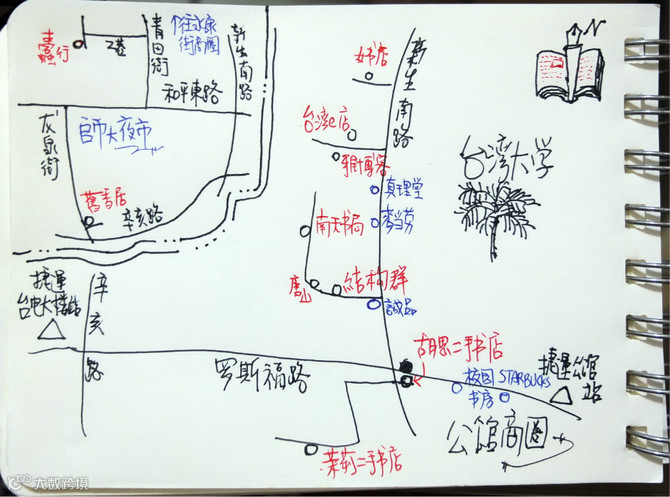 蠹行
2巷
青田街
往永康
街商圈
新生南路
N
和平東路
龙泉街
師大夜市
舊書店
辛亥路
女书店
台湾e店
雅博客
真理堂
南天书局
麥当劳
唐山
結构群
誠品
新生南路
台湾大学
捷運
台电大樓站
辛亥路
罗斯福路
古月思二手书店
校园
书房
STARBUCKS
捷運公館站
公館商圈
茉莉二手书店
大数跨境